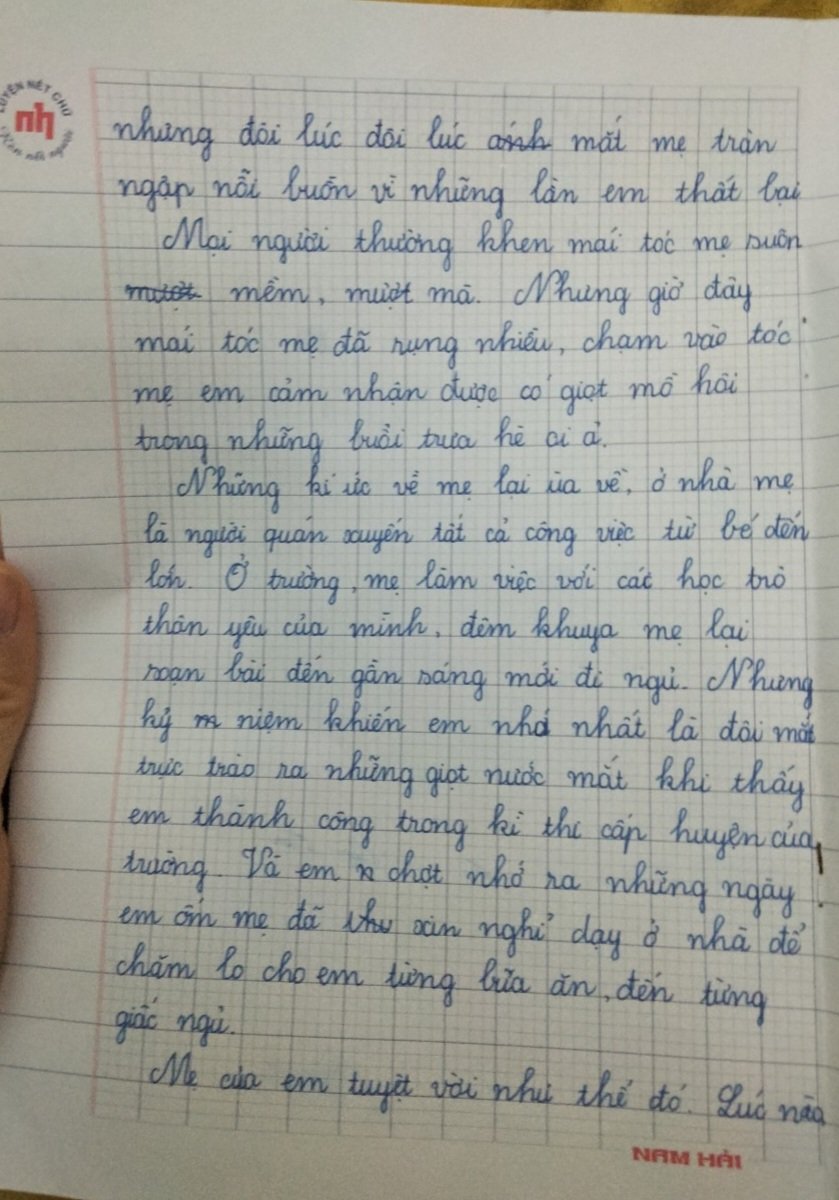 LUYỆN NÉT CHỮ
nh
Rèn nết người
nhưng đôi lúc đôi lúc ánh mắt mẹ tràn
ngập nỗi buồn vì những lần em thất bại
Mọi người thường khen mái tóc mẹ suôn
mượt mềm, mượt mà. Nhưng giờ đây
mái tóc mẹ đã rụng nhiều, chạm vào tóc
mẹ em cảm nhận được có giọt mồ hôi
trong những buổi trưa hè ai ả.
Những kí ức về mẹ lại ùa về, ở nhà mẹ
là người quán xuyến tất cả công việc từ bé đến
lớn. Ở trường, mẹ làm việc với các học trò
thân yêu của mình, đêm khuya mẹ lại
soạn bài đến gần sáng mới đi ngủ. Nhưng
kỷ m niệm khiến em nhớ nhất là đôi mắt
trực trào ra những giọt nước mắt khi thấy
em thành công trong kì thi cấp huyện của
trường. Và em n chợt nhớ ra những ngày
em ốm mẹ đã thu xin nghỉ dạy ở nhà để
chăm lo cho em từng bữa ăn, đến từng
giấc ngủ.
Mẹ của em tuyệt vời như thế đó. Lúc nào
NAM HẢI